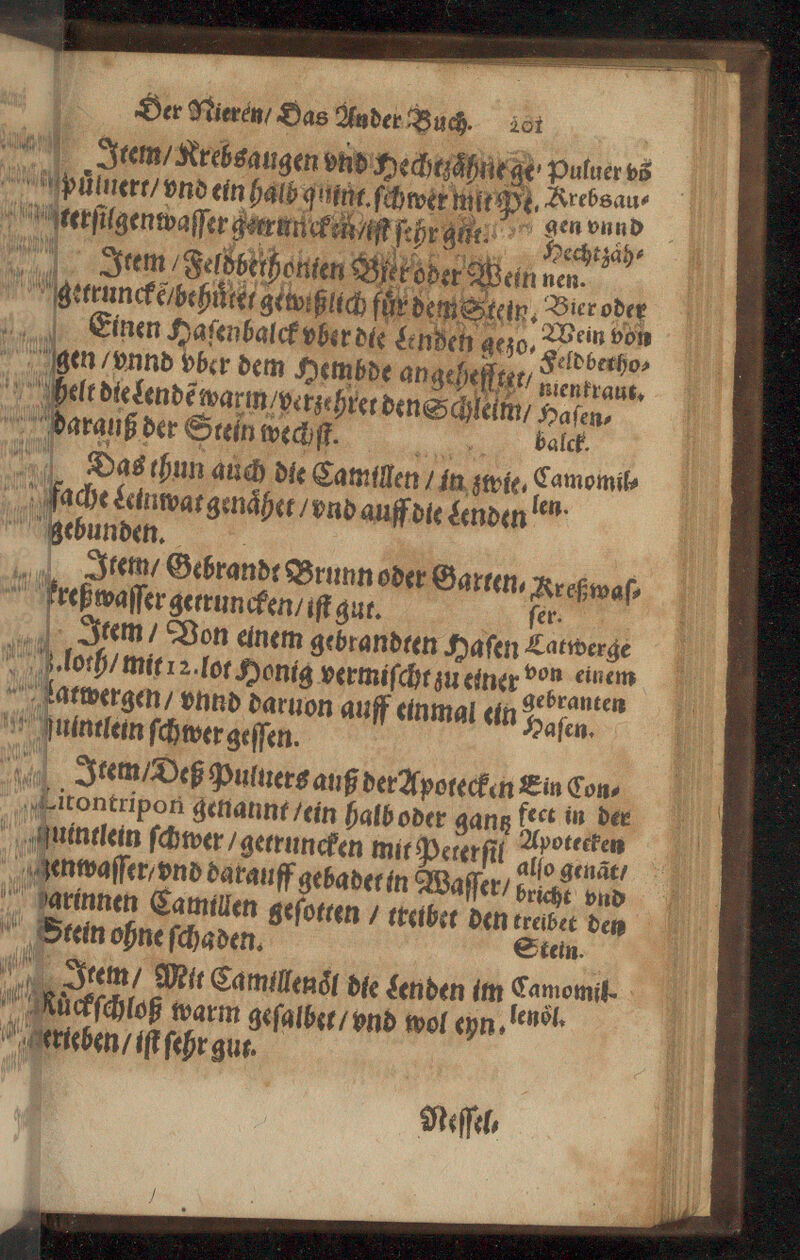 Der Nieren/ Das Ander Buch. 101
Item/ Krebsaugen vnd Hechtzåhne ge-
půluert/ vnd ein halb quint. schwer mit Pe-
tersilgenwasser getruncken/ist sehr gut.
Item /Feldbethonien Bier oder Wein
getrunckẽ/behůtet gewißlich fůr dem Stein.
Einen Hasenbalck vber die Lenden gezo-
gen /vnnd vber dem Hembde angehefftet/
helt die Lendẽ warm/verzehret den Schleim/
darauß der Stein wechst.
Das thun auch die Camillen / in zwie-
fache Leinwat genåhet /vnd auff die Lenden
gebunden.
Item/ Gebrandt Brunn oder Garten-
kreßwasser getruncken/ ist gut.
Item / Von einem gebrandten Hasen
loth/ mit 12. lot Honig vermischt zu einer
Latwergen/ vnnd daruon auff einmal ein
quintlein schwer gessen.
Item/Deß Puluers auß der Apotecken
Litontripon genannt /ein halb oder gantz
quintlein schwer /getruncken mit Petersil
genwasser/vnd darauff gebadet in Wasser/
darinnen Camillen gesotten / treibet den
Stein ohne schaden.
Item/ Mit Camillenöl die Lenden im
Růckschloß warm gesalbet/ vnd wol eyn-
gerieben/ ist sehr gut.
Puluer võ
Krebsau-
gen vnnd
Hechtzäh-
nen.
Bier oder
Wein von
Feldbetho-
nienkraut.
Hasen-
balck.
Camomil-
len.
Kreßwas-
ser.
Latwerge
von einem
gebranten
Hasen.
Ein Con-
fect in der
Apotecken
also genãt/
bricht vnd
treibet den
Stein.
Camomil-
lenöl.
Nessel-